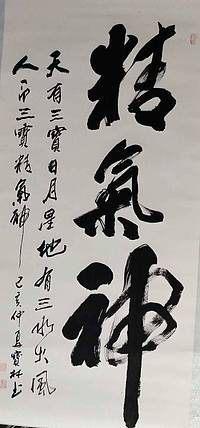 精氣神
天有三寶日月星地有三水火風
人有三寶精氣神 己亥仲夏寶林书